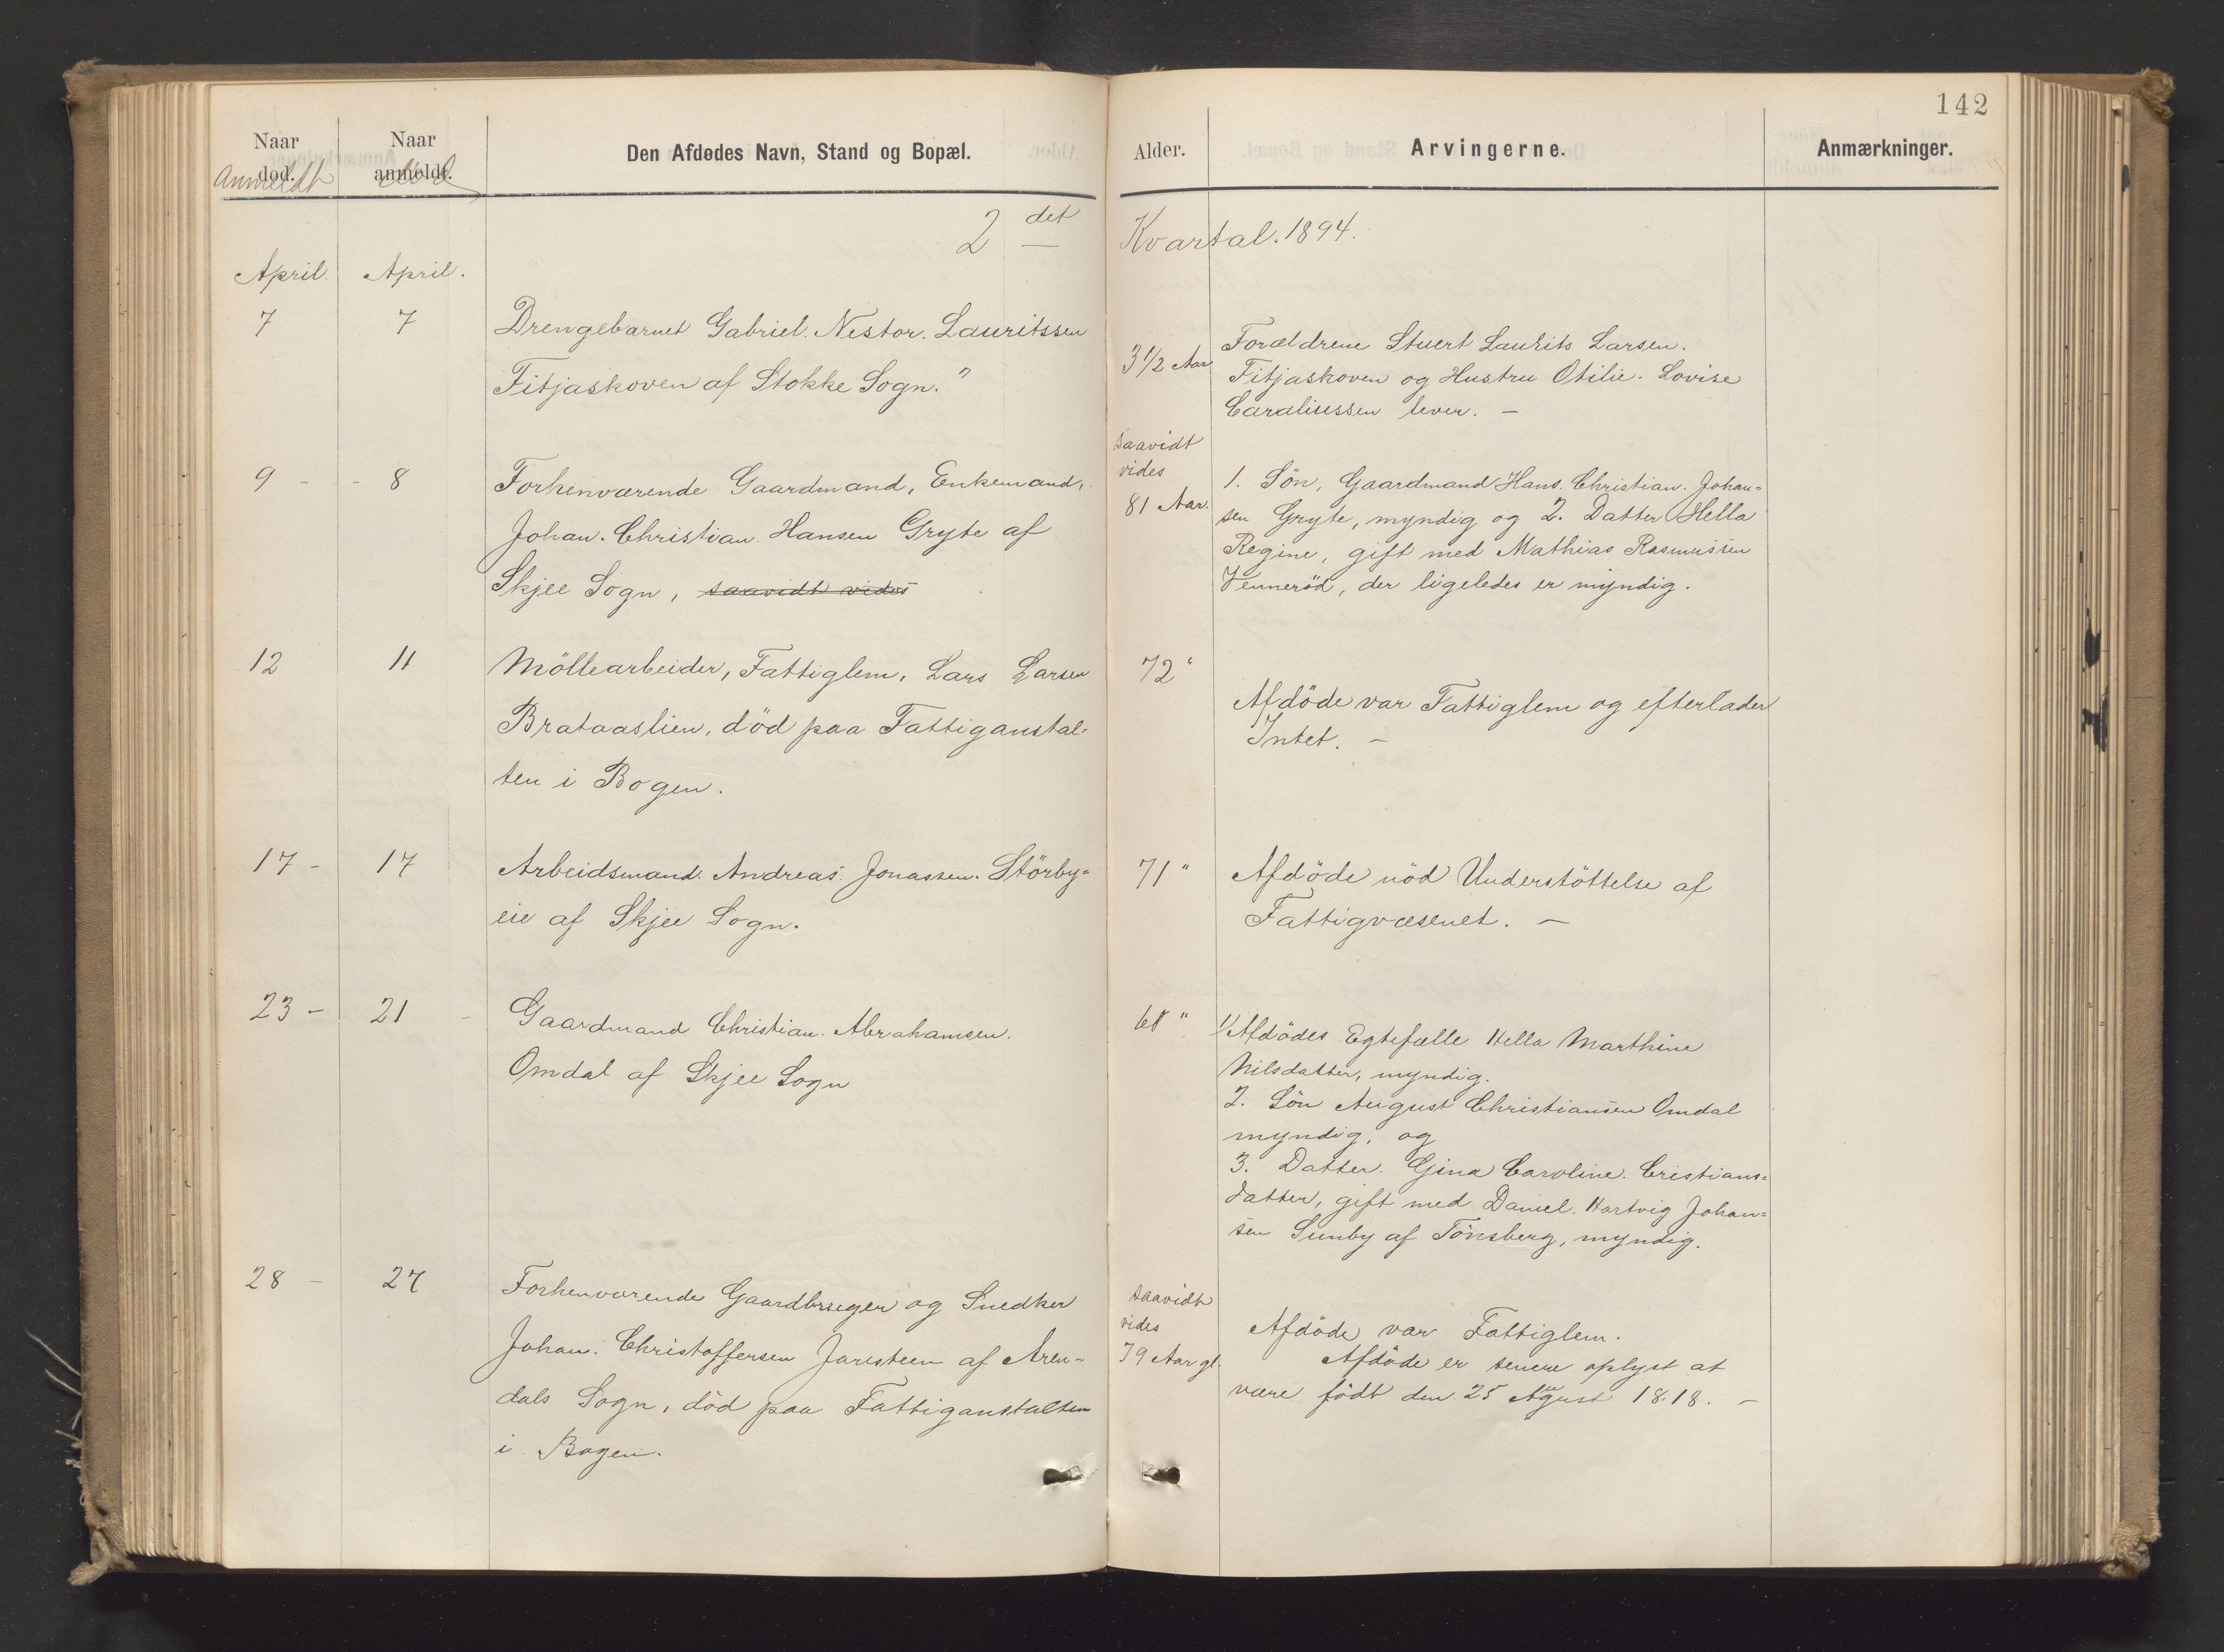 142
Naar død. Anmeldt
Naar anmeldt. død
Den Afdødes Navn, Stand og Bopæl.
Alder.
Arvingerne.
Anmærkninger.
2det Kvartal. 1894.
April. April.
7 7 Drengebarnet Gabriel. Nestor. Lauritssen
Fitjaskoven af Stokke Sogn."
3 1/2 Aar
Forældrene Stuert Laurits Larsen.
Fitjaskoven og Hustru Otilie. Lovise
Caraliussen lever. –
9 - - 8 Forhenværende Gaardmand, Enkemand,
Johan. Christian. Hansen Gryte af
Skjee Sogn, saavidt vides
saavidt
vides
81 Aar.
1. Sön, Gaardmand Hans. Christian. Johan=
sen Gryte, myndig og 2. Datter Hella
Regine, gift med Mathias Rasmussen
Venneröd, der ligeledes er myndig.
12 11 Möllearbeider, Fattiglem, Lars Larsen
Brataaslien, död paa Fattiganstal-
ten i Bogen.
72 "
Afdöde var Fattiglem og efterlader
Intet. –
17 - 17 Arbeidsmand. Andreas. Jonassen. Störby=
eie af Skjee Sogn.
71 "
Afdöde nöd Understöttelse af
Fattigvæsenet. –
23 - 21 - Gaardmand Christian. Abrahamsen.
Omdal af Skjee Sogn
68 "
1/ Afdödes Egtefælle Hella Marthine
Nilsdatter, myndig.
2. Sön August Christiansen Omdal
myndig, og
3. Datter. Gina Caroline. Cristians=
datter, gift med Daniel. Hartvig Johan=
sen Sunby af Tönsberg, myndig.
28 - 27 Forhenværende Gaardbruger og Snedker
Johan. Christoffersen Jaresteen af Aren-
dals Sogn, död paa Fattiganstalten
i Bogen.
saavidt
vides
79 Aar gl.
Afdöde var Fattiglem.
Afdöde er senere oplyst at
være födt den 25 August 1818. –